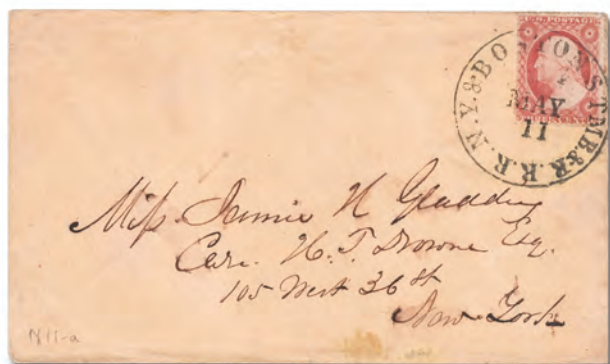 U.S. POSTAGE
N.Y. & BOSTON STMB. & R.R.R.
MAY
11
Miss Jennie H Gladding
Care. H. T. Drowne Esq.
105 West 36 st
New-York
N11-a